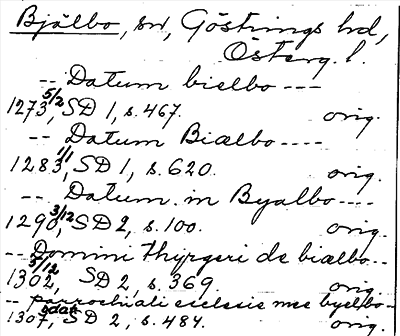 Bjälbo, sn, Göstrings hd,
Österg. l.
-- Datum bielbo ----
1273 5/2, SD 1, s. 467. orig.
-- Datum Biælbo ----
1283 1/1, SD 1, s. 620. orig.
-- Datum in Byalbo ----
1290 3/12, SD 2, s. 100. orig.
-- Domini thyrgeri de biælbo --
1302 3/12, SD 2, s. 369. orig.
-- parrochiali ecclesie mee byelbo --
1307, SD 2, s. 484. orig.